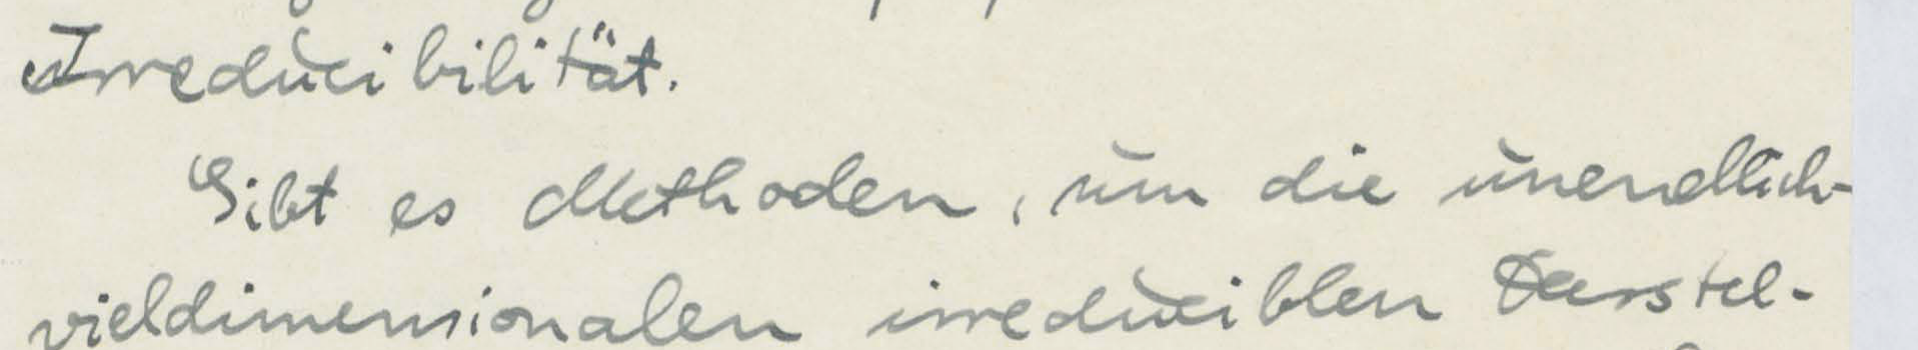 Irreducibilität.
Gibt es Methoden, um die unendlich-
vieldimensionalen irreduciblen Darstel-